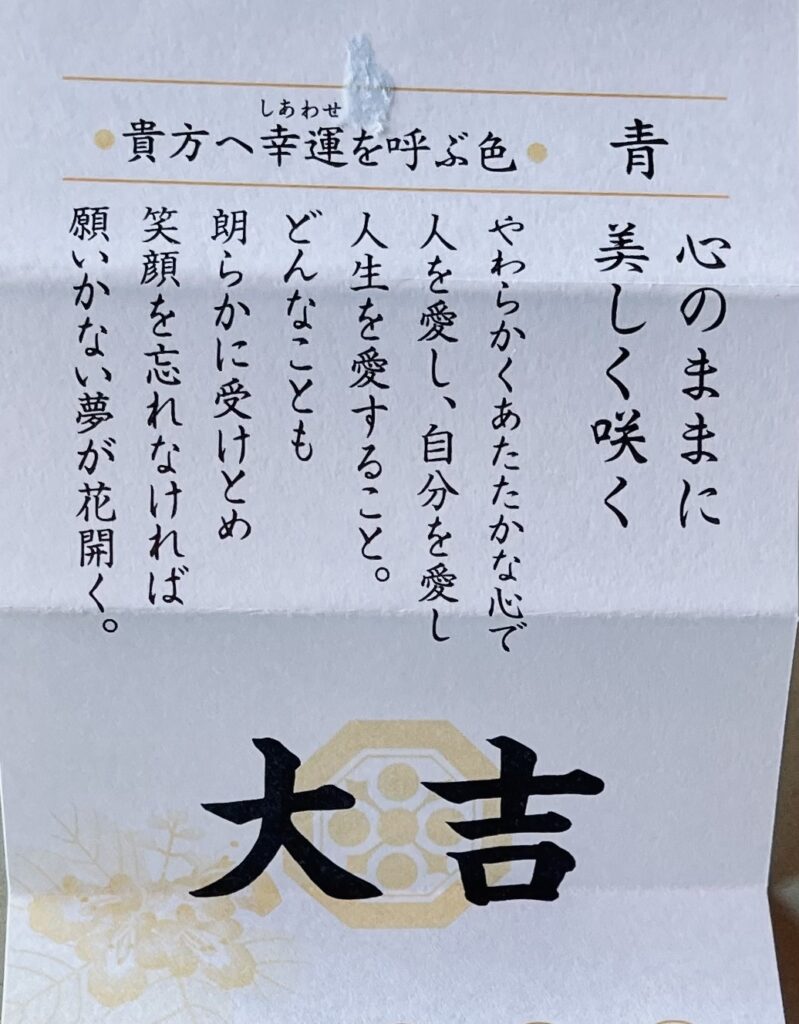 貴方へ幸運を呼ぶ色 青
しあわせ
心のままに
美しく咲く
やわらかくあたたかな心で
人を愛し、自分を愛し
人生を愛すること。
どんなことも
朗らかに受けとめ
笑顔を忘れなければ
願いかない夢が花開く。
大吉